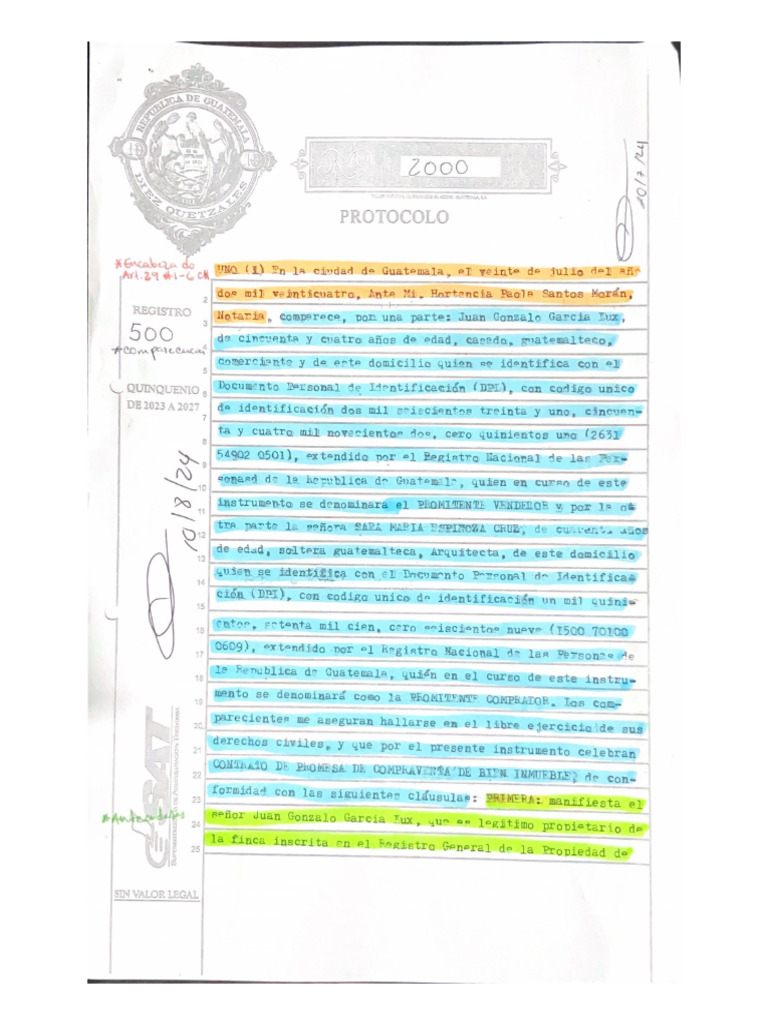 REPUBLICA DE GUATEMALA
DIEZ QUETZALES
2000
PROTOCOLO
20/7/24
*Encabezado
Art.29 #1-6 CN
REGISTRO
500
*comparecencia
QUINQUENIO
DE 2023 A 2027
10/8/24
UNO (1) En la ciudad de Guatemala, el veinte de julio del año
2 dos mil veinticuatro, Ante Mi. Hortencia Paola Santos Morán,
3 Notaria, comparece, por una parte: Juan Gonzalo Garcia Xux,
4 de cincuenta y cuatro años de edad, casado, guatemalteco,
5 comerciante y de este domicilio quien se identifica con el
6 Documento Personal de Identificación (DPI), con codigo unico
7 de identificación dos mil seiscientos treinta y uno, cincuen-
8 ta y cuatro mil novecientos dos, cero quinientos uno (2631
9 54902 0501), extendido por el Registro Nacional de las Per-
10 sonasd de la Republica de Guatemala, quien en curso de este
11 instrumento se denominará el PROMITENTE VENDEDOR y por la o-
12 tra parte la señora SARA MARIA ESPINOZA CRUZ, de cuarenta años
13 de edad, soltera guatemalteca, Arquitecta, de este domicilio
14 quien se identifica con el Documento Personal de Identifica-
15 ción (DPI), con codigo unico de identificación un mil quini-
16 entos, setenta mil cien, cero seiscientos nueve (1500 70100
17 0609), extendido por el Registro Nacional de las Personas de
18 la Republica de Guatemala, quién en el curso de este instru-
19 mento se denominará como la PROMITENTE COMPRADOR. Los com-
20 parecientes me aseguran hallarse en el libre ejercicio de sus
21 derechos civiles, y que por el presente instrumento celebran
22 CONTRATO DE PROMESA DE COMPRAVENTA DE BIEN INMUEBLE, de con-
23 formidad con las siguientes cláusulas: PRIMERA: manifiesta el
24 señor Juan Gonzalo Garcia Xux, que es legitimo propietario de
25 la finca inscrita en el Registro General de la Propiedad de
*Antecedentes
SAT
SUPERINTENDENCIA DE ADMINISTRACION TRIBUTARIA
SIN VALOR LEGAL